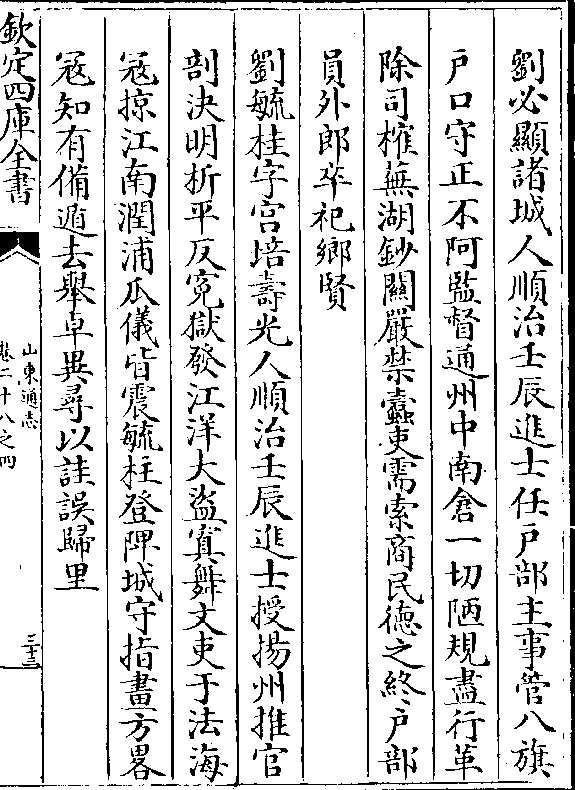 劉必顯諸城人順治壬辰進士任戸部主事管八旗
戸口守正不阿監督通州中南倉一切陋規盡行革
除司榷蕪湖鈔關嚴禁蠧吏需索商民徳之終戸部
員外郎卒祀鄉賢
劉毓桂字宫培壽光人順治壬辰進士授揚州推官
剖決明折平反寃獄發江洋大盗寘舞文吏于法海
冦掠江南潤浦瓜儀皆震毓柱登陴城守指畫方畧
冦知有備遁去舉卓異尋以詿誤歸里
欽定四庫全書
山東通志
卷二十八之四
三十三